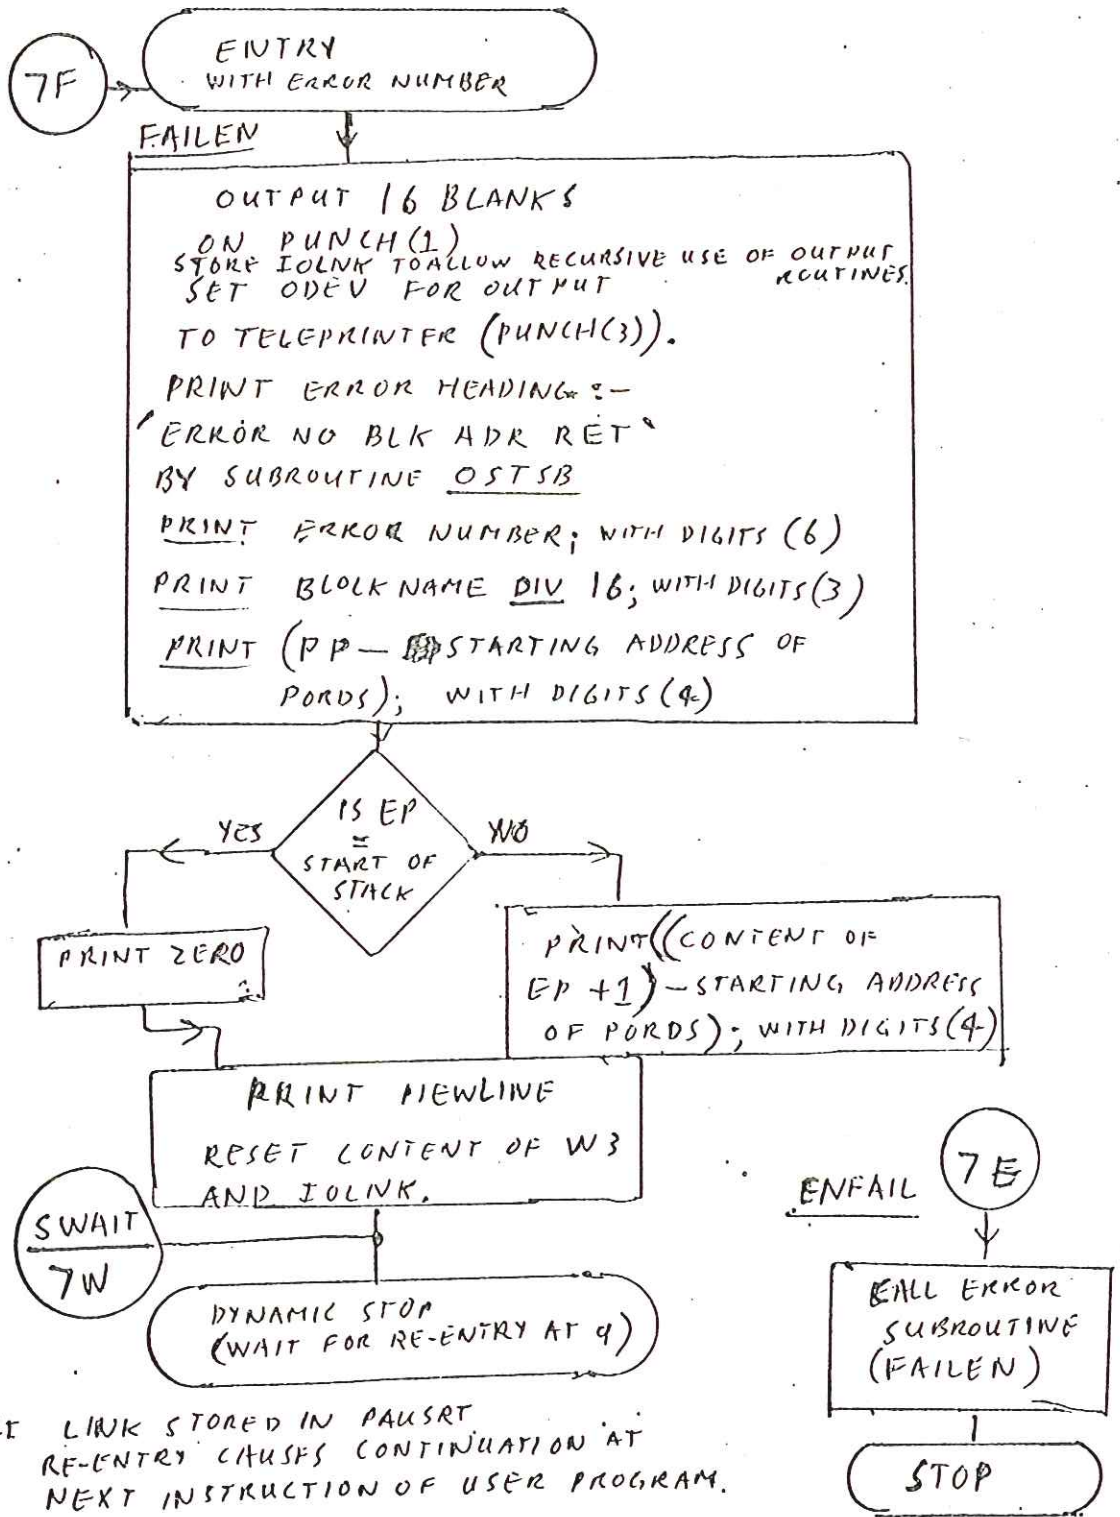 7F
ENTRY
WITH ERROR NUMBER
FAILEN
OUTPUT 16 BLANKS
ON PUNCH(1)
STORE IOLNK TO ALLOW RECURSIVE USE OF OUTPUT
ROUTINES.
SET ODEV FOR OUTPUT
TO TELEPRINTER (PUNCH(3)).
PRINT ERROR HEADING :-
'ERROR NO BLK ADR RET'
BY SUBROUTINE OSTSB
PRINT ERROR NUMBER; WITH DIGITS (6)
PRINT BLOCKNAME DIV 16; WITH DIGITS(3)
PRINT (PP — STARTING ADDRESS OF
PORDS); WITH DIGITS (4)
IS EP
=
START OF
STACK
YES
NO
PRINT ZERO
PRINT((CONTENT OF
EP +1) - STARTING ADDRESS
OF PORDS); WITH DIGITS(4)
PRINT NEWLINE
RESET CONTENT OF W3
AND IOLNK.
SWAIT
7W
DYNAMIC STOP
(WAIT FOR RE-ENTRY AT 9)
LINK STORED IN PAUSRT
RE-ENTRY CAUSES CONTINUATION AT
NEXT INSTRUCTION OF USER PROGRAM.
7E
ENFAIL
CALL ERROR
SUBROUTINE
(FAILEN)
STOP